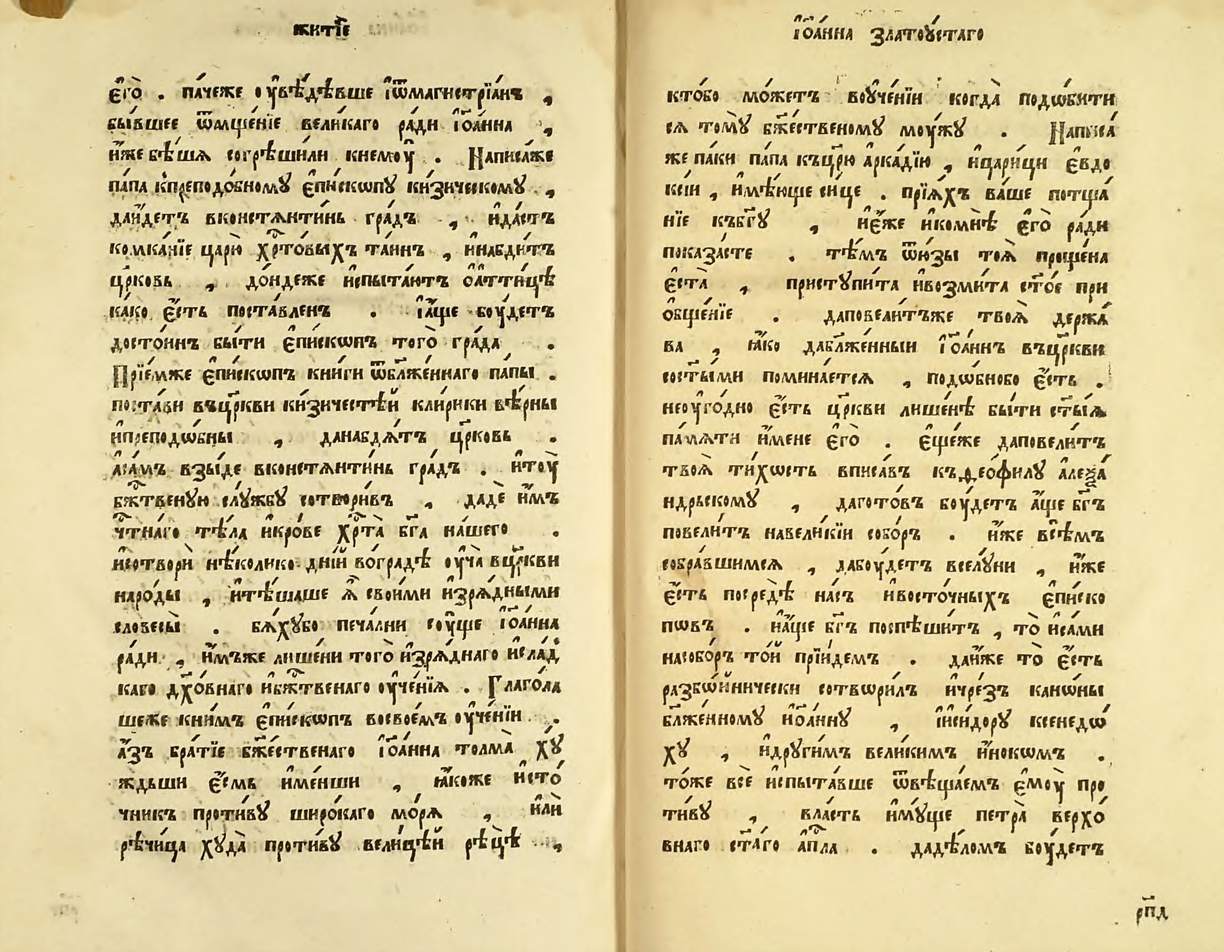 житїе
его̀ . па́чеже оувѣ́дѣвше ѿмагистрїа́нъ ,
бы́вшее ѿмще́нїе вели́каго ра́ди іѡа́нна ,
и҆́же бѣ́шѧ согрѣши́ли кнемоу̀ . Написа́же
па́па кпреподо́бномꙋ є҆пи́скопꙋ ки́зическомꙋ ,
да́идетъ вконстѧнти́нь гра́дъ , и҆да́стъ
комка́нїе царю̀ хрⷭ҇то́выхъ та́инъ , и҆набди́тъ
цр҃ковь , до́ндеже и҆спыта́ютъ ѡ҆а́ттицѣ
ка́ко є҆́сть поста́вленъ . і҆а҆́ще бу́детъ
досто́инъ бы́ти є҆пи́скопъ того̀ гра́да .
Прїе́мже є҆пи́скопъ кни́ги ѿбл҃же́ннаго па́пы .
поста́ви въцр҃кви ки́зичестѣй кли́рики вѣ́рны
и҆преподѡ́бны , данабдѧ́тъ цр҃ковь .
а҆са́мъ взы́де вконстѧнти́нь гра́дъ . и҆тоу̀
бж҃твеную слꙋ́жбꙋ сотвори́въ , дадѐ и҆́мъ
чⷭ҇тнаго тѣ́ла и҆кро́ве хрⷭ҇та̀ бг҃а на́шего .
и҆сотворѝ нѣ́колико дні́й воградѣ оуча̀ вцр҃кви
наро́ды , и҆тѣша́ше ѧ҆̀ свои́ми и҆зрѧ́дными
словесы̀ . бѧ́хꙋбо печа́лни соу́ще іѡа́нна
ра́ди , и҆́мъже лише́ни того̀ и҆зрѧ́днаго и҆сла́д
каго дх҃о́внаго и҆бж҃твенаго оуче́нїѧ . Глагола
шеже кни́мъ є҆пи́скопъ восвое́мъ оуче́нїи .
а҆́зъ бра́тїе бж҃е́ственаго іѡа́нна толма̀ хꙋ́
ждьши є҆́смь и҆ме́нши , ꙗ҆́коже и҆сто́
чникъ проти́вꙋ широ́каго мо́рѧ , и҆лѝ
рѣ́чица хꙋда̀ проти́вꙋ вели́цѣй рѣ́цѣ ,
іѡа́нна златоꙋ́стаго
кто́бо мо́жетъ воуче́нїи когда̀ подо́бити
сѧ томꙋ̀ бж҃ественомꙋ моу́жꙋ . Написа́
же па́ки па́па къцр҃ю а҆рка́дїю , и҆цари́ци є҆вдо
ксі́и , и҆мѣ́юще си́це . прїѧ́хъ ва́ше потща́
нїе къбг҃ꙋ , и҆є҆́же и҆комнѣ̀ є҆го̀ ра́ди
показа́сте . тѣ́мъ ѿю҆́зы тоѧ̀ проще́на
є҆ста̀ , приступи́та и҆возми́та ст҃о́е при
ѡ҆бще́нїе . даповели́тъже твоѧ̀ держа́
ва , ꙗ҆́ко дабл҃же́нныи іѡа́ннъ въцр҃кви
сост҃ы́ми помина́етсѧ , подо́бнобо є҆́сть .
неоуго́дно є҆́сть цр҃кви лише́нѣ бы́ти ст҃ы́ѧ
па́мѧти и҆́мене є҆го̀ . є҆ще́же даповели́тъ
твоѧ̀ ти́хость вписа́въ къѳеофи́лꙋ а҆леѯа́
ндрьскомꙋ , дагото́въ бу́детъ а҆́ще бг҃ъ
повели́тъ навели́кїи собо́ръ . и҆́же всѣ́мъ
собра́вшимсѧ , дабу́детъ вселꙋ́ни , и҆́же
є҆́сть посредѣ̀ на́съ и҆восто́чныхъ є҆пи́ско
пѡвъ . и҆а҆́ще бг҃ъ поспѣши́тъ , то̀ и҆са́ми
насобо́ръ то́й прїи́демъ . да́иже то̀ є҆́сть
разбо́инически сотвори́лъ и҆чре́зъ кано́ны
бл҃же́нномꙋ и҆ѡа́ннꙋ , і҆и҆си́дорꙋ ксенедо
хꙋ , и҆дрꙋги́мъ вели́кимъ и҆́нокѡмъ .
то́же всѐ и҆спыта́вше ѿвѣща́емъ є҆моу̀ про
ти́вꙋ , вла́сть и҆мꙋ́ще петра̀ верхо́
внаго ст҃а́го а҆пⷭ҇ла . дадѣ́ломъ бу́детъ
рп҃д